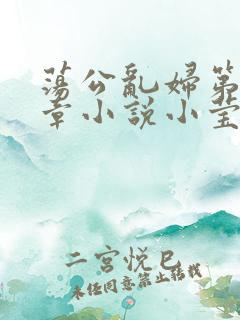 蕩公亂婦第
章小說小莹
二宮悅巳
未经同意禁止转载